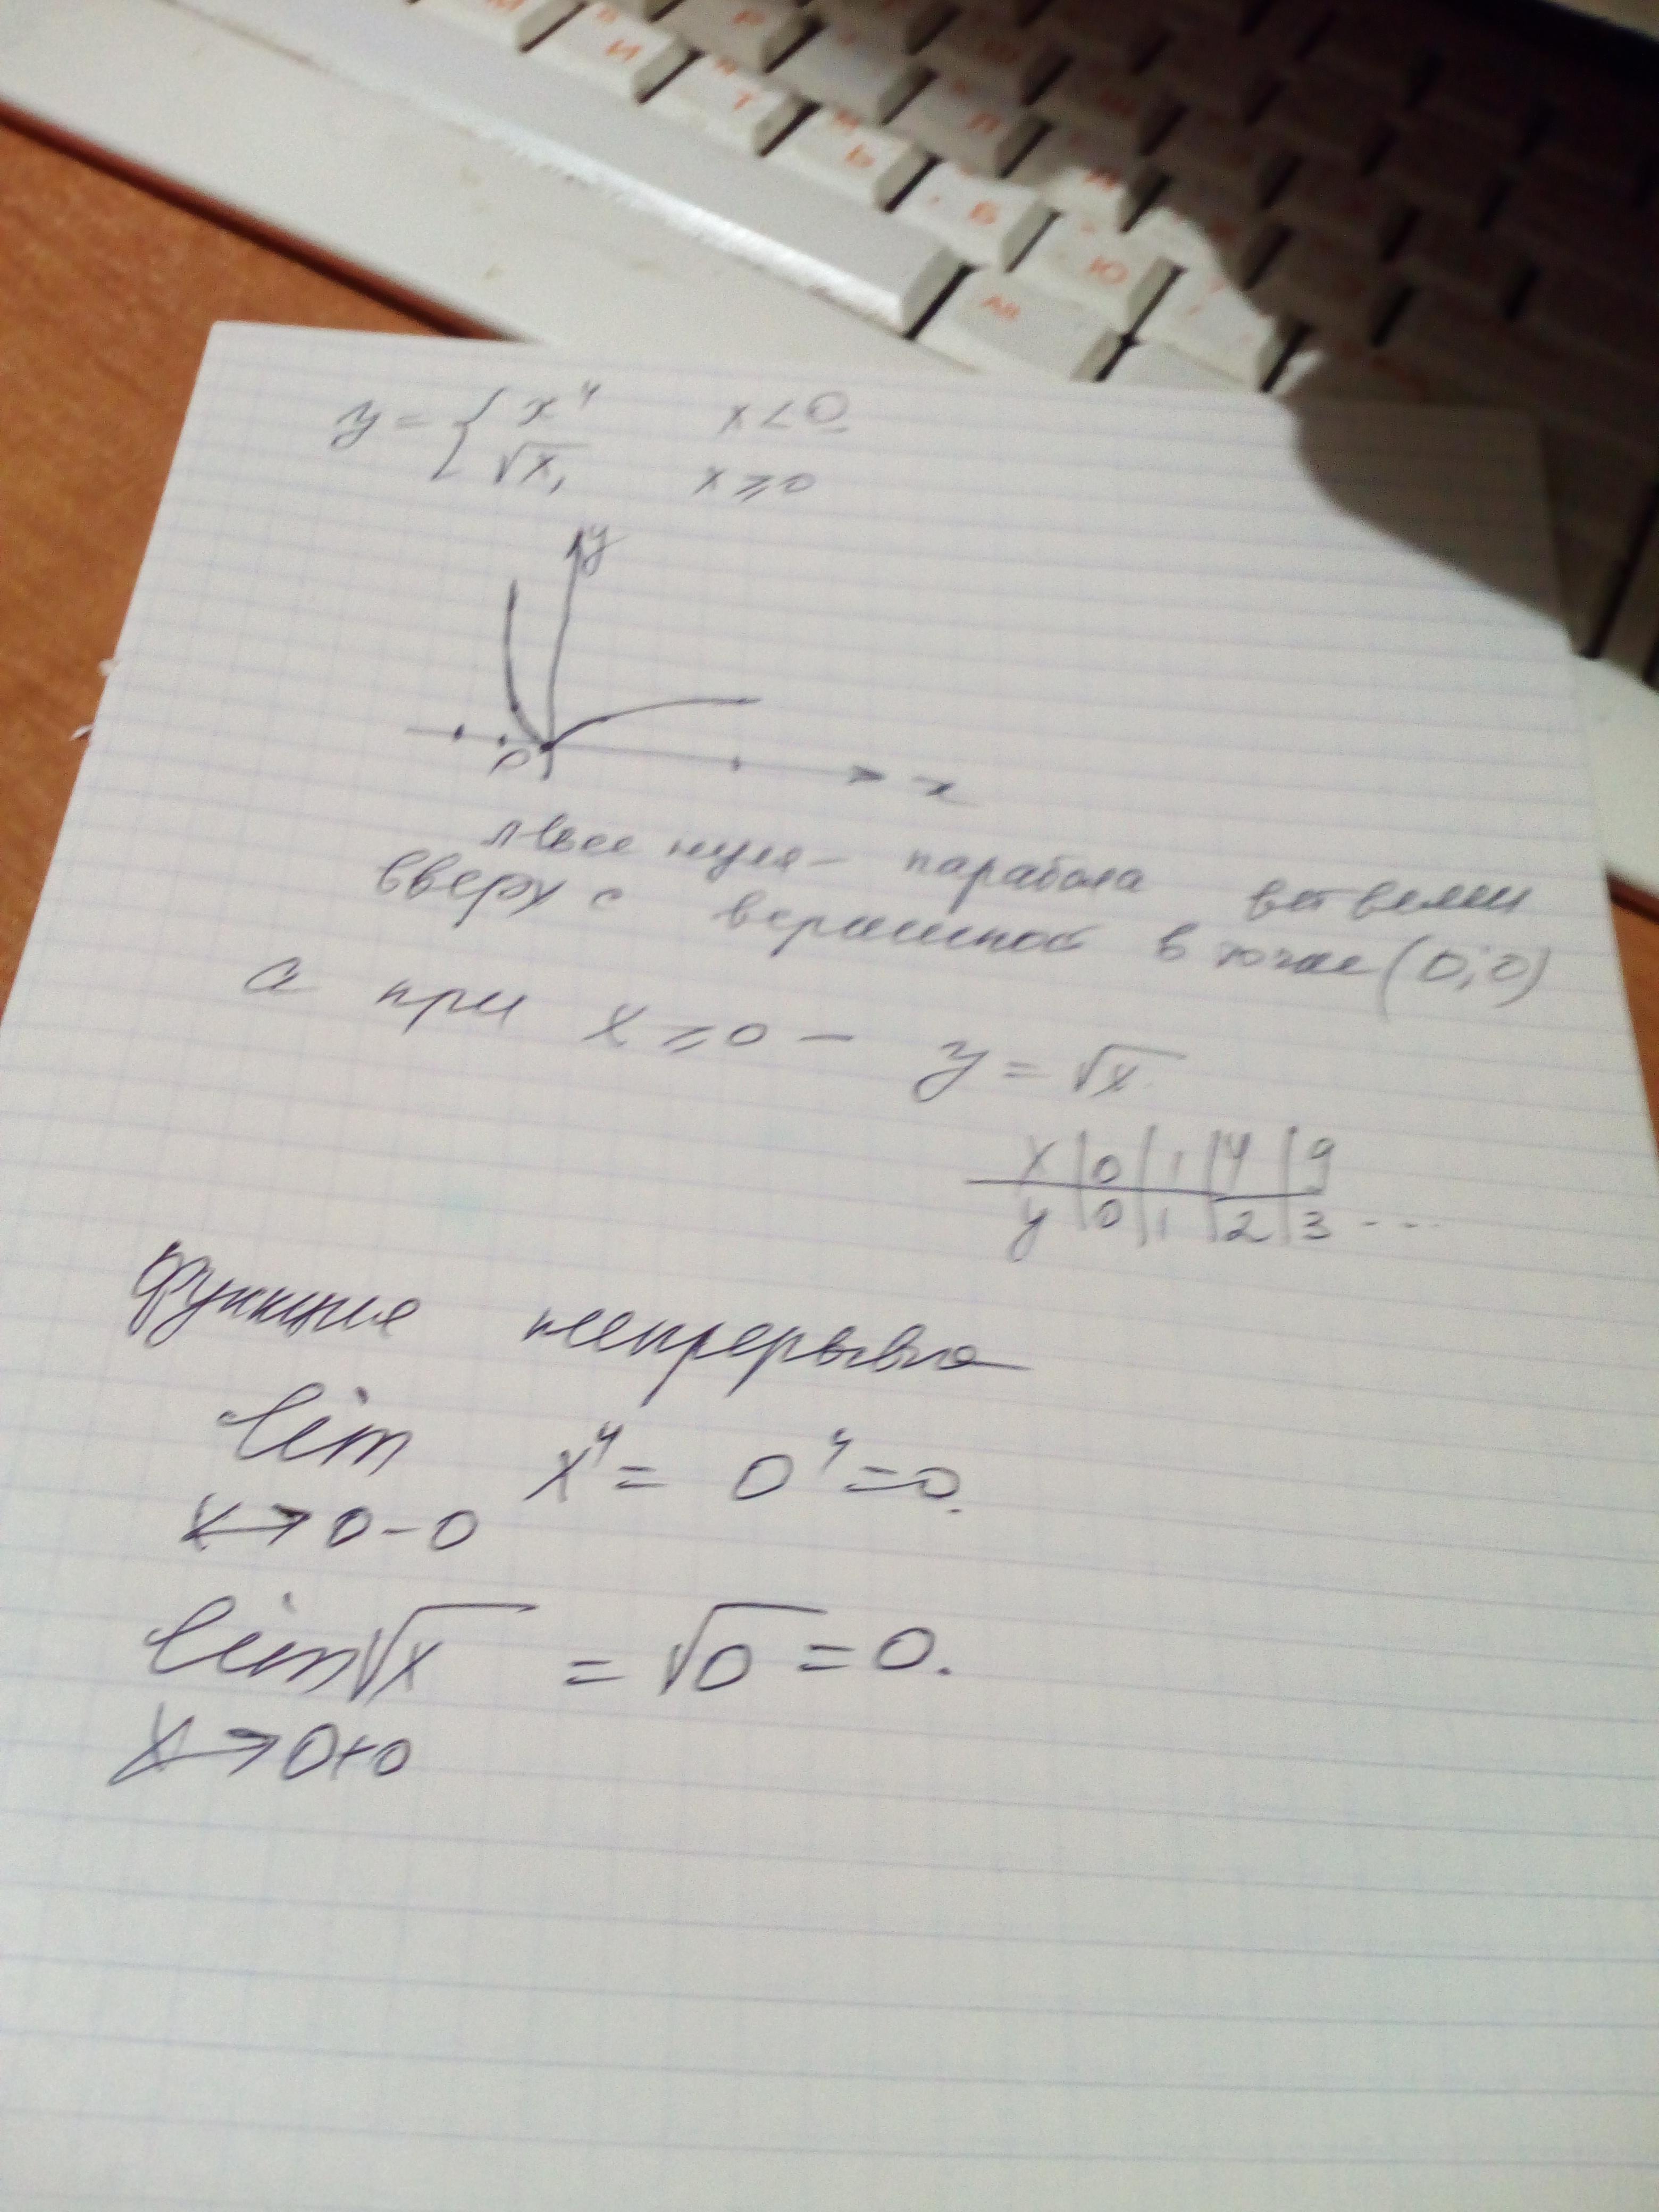 М
И
Т
Ь
Б
Ю
Р
Л
Alt
y = { x⁴ x < 0
√x, x ⩾ 0
y
0
x
левее нуля – парабола ветвями
вверх с вершиной в точке (0; 0)
а при x ⩾ 0 – y = √x
x | 0 | 1 | 4 | 9
y | 0 | 1 | 2 | 3 ...
функция непрерывна
lim x⁴ = 0⁴ = 0.
x → 0 – 0
lim √x = √0 = 0.
x → 0 + 0